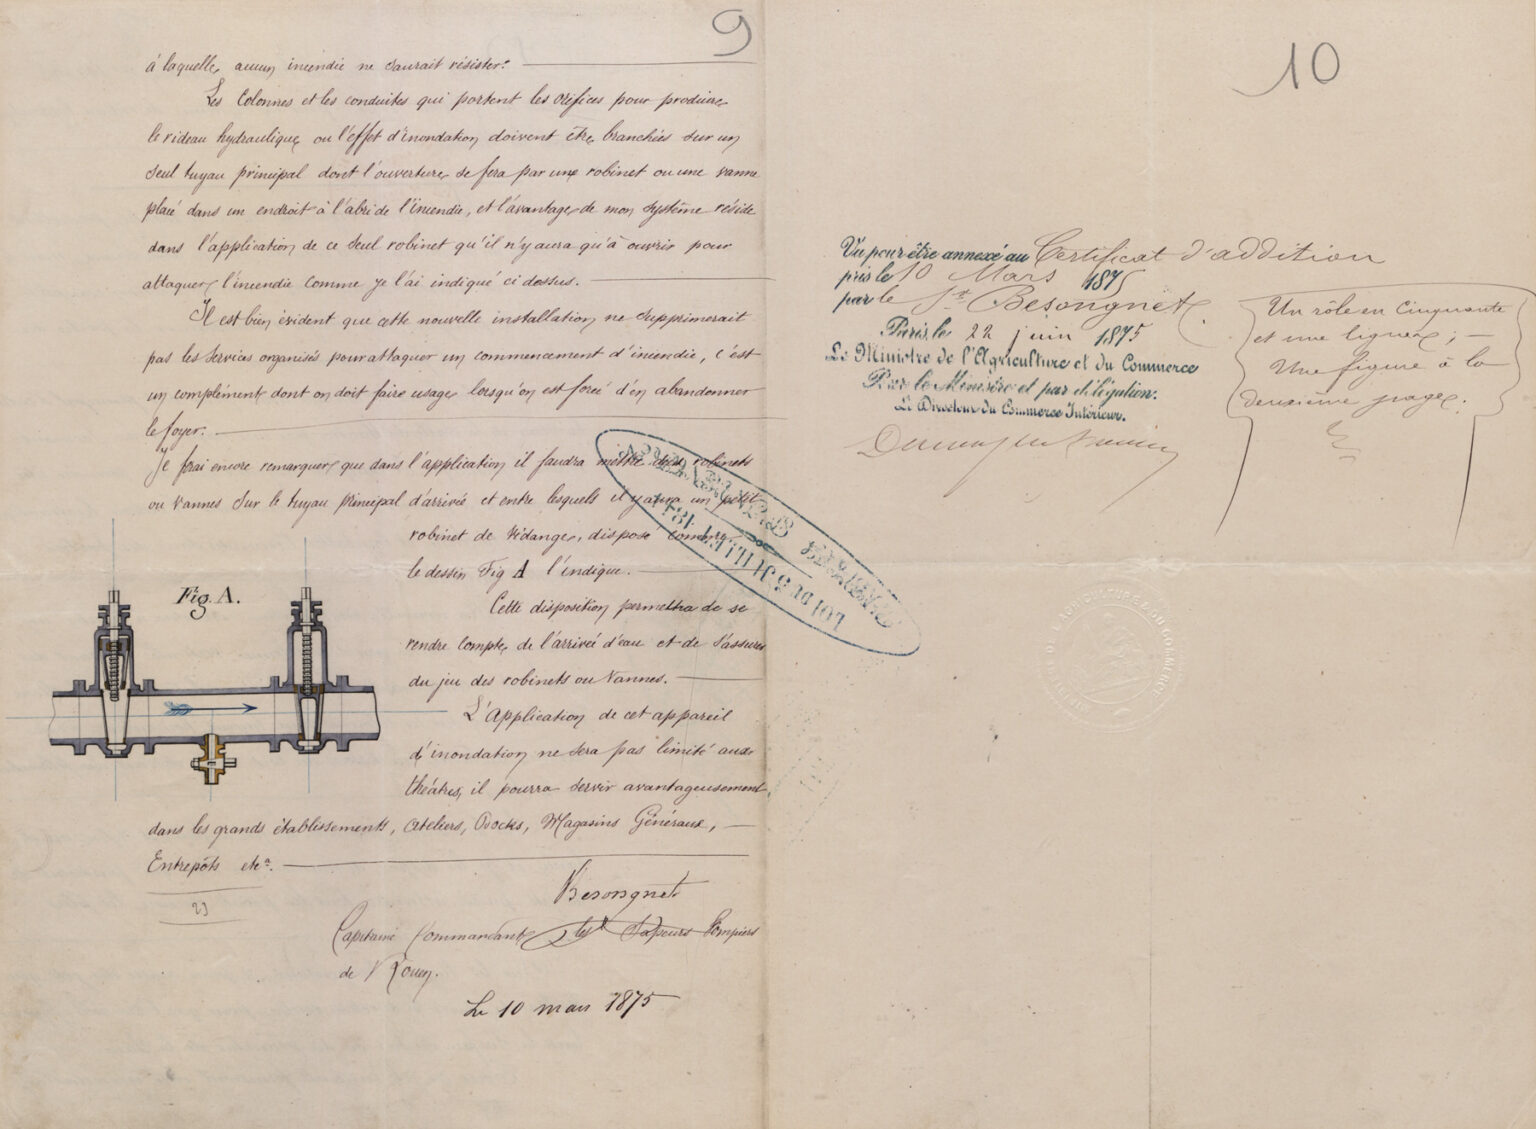 9
à laquelle, aucun incendie ne saurait résister.
Les Colonnes et les conduites qui portent les orifices pour produire
le rideau hydraulique, ou l'effet d'inondation doivent être branchées sur un
seul tuyau principal dont l'ouverture se fera par une robinet ou une vanne
placé dans un endroit à l'abri de l'incendie, et l'avantage de mon système réside
dans l'application de ce seul robinet qu'il n'y aura qu'à ouvrir pour
attaquer l'incendie comme je l'ai indiqué ci dessus.
Il est bien évident que cette nouvelle installation ne supprimerait
pas les services organisés pour attaquer un commencement d'incendie, c'est
un complément dont on doit faire usage lorsqu'on est forcé d'en abandonner
le foyer.
Je ferai encore remarquer que dans l'application il faudra mettre des robinets
ou vannes sur le tuyau principal d'arrivée et entre lesquels il y aura un petit
robinet de vidange, disposé comme
le dessin Fig A l'indique.
Cette disposition permettra de se
rendre compte de l'arrivée d'eau et de s'assurer
du jeu des robinets ou vannes.
L'Application de cet appareil
d'inondation ne sera pas limité aux
théatres, il pourra servir avantageusement
dans les grands établissements, Ateliers, Docks, Magasins Généraux,
Entrepôts etc.
Fig. A.
Besongnet
Capitaine Commandant les Sapeurs Pompiers
de Rouen.
Le 10 mars 1875
LOI DU 5 JUILLET 1844
10
Vu pour être annexé au Certificat d'addition
pris le 10 Mars 1875
par le Sr. Besongnet
Paris, le 22 juin 1875
Le Ministre de l'Agriculture et du Commerce
Pour le Ministre et par délégation.
Le Directeur du Commerce Intérieur.
Un rôle en cinquante
et une lignes; —
Une figure à la
deuxième page.